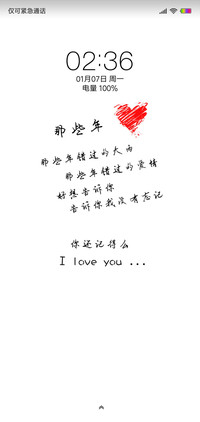 仅可紧急通话
02:36
01月07日 周一
电量 100%
那些年
那些年错过的大雨
那些年错过的爱情
好想告诉你
告诉你我没有忘记
你还记得么
I love you ...